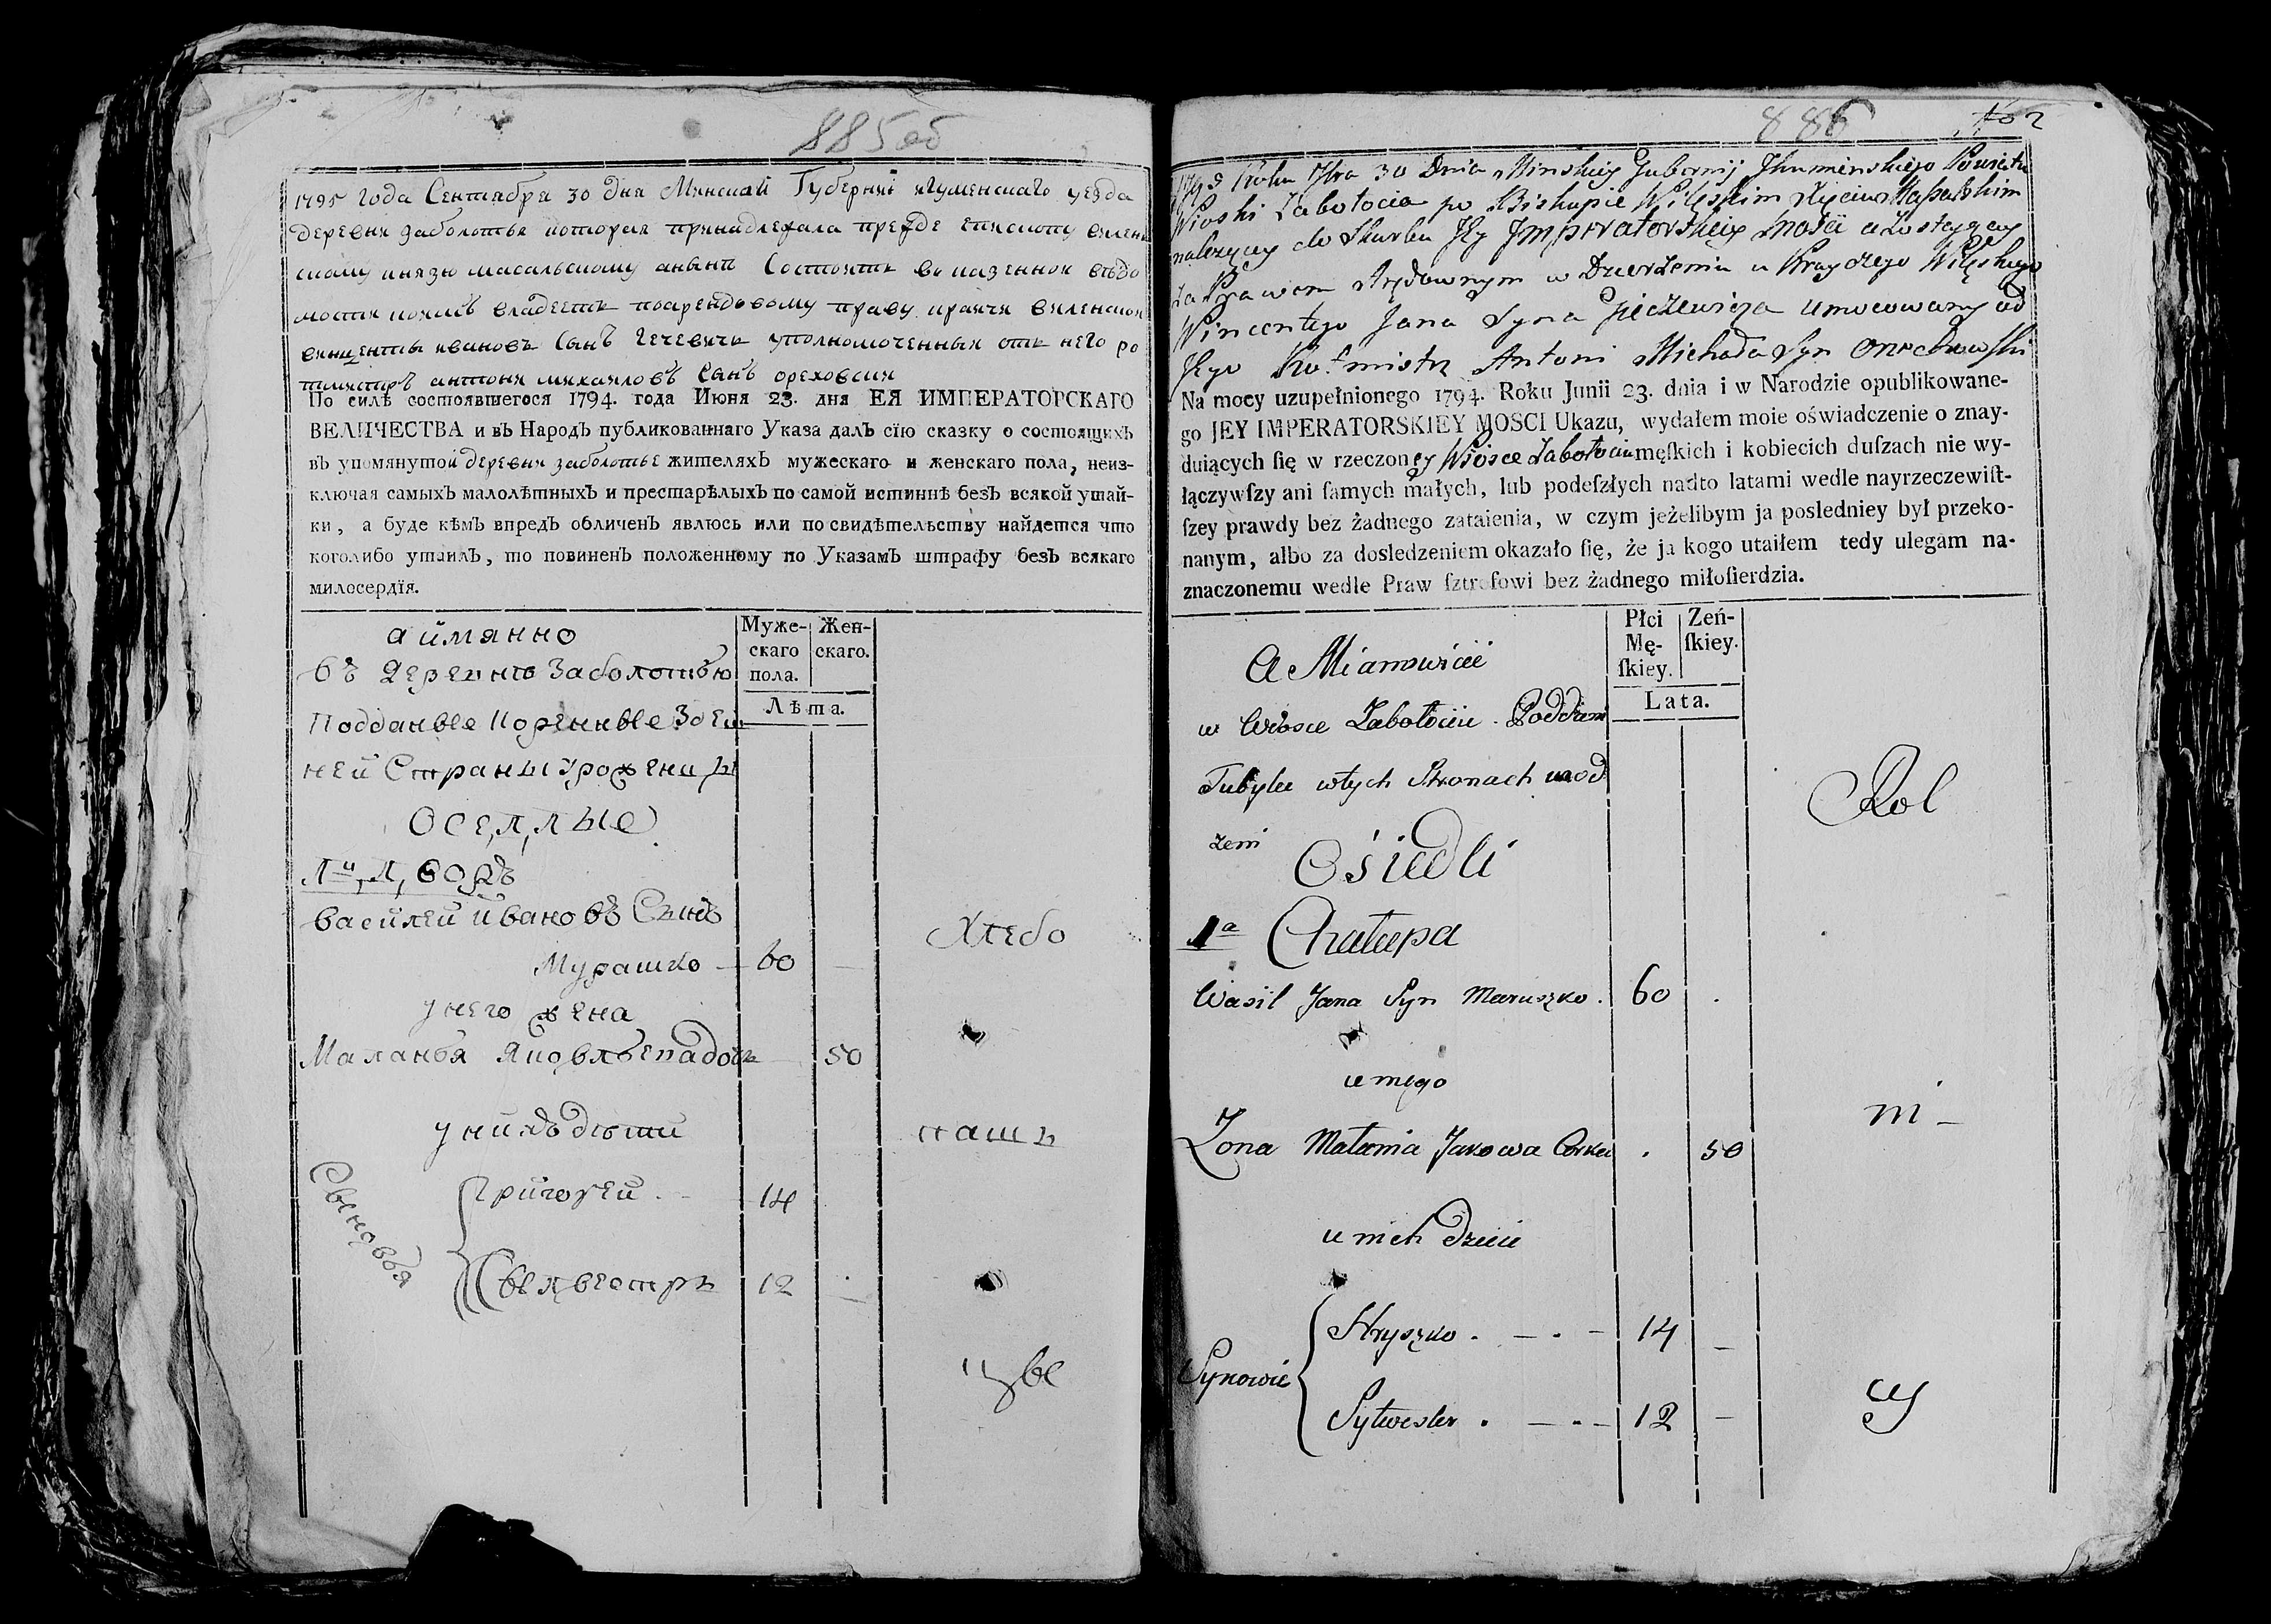 885об
1795 года Сентября 30 дня Минской Губернии игуменскаго уезда
деревни заболотья которая принадлежала прежде епископу вилен
скому князю масальскому аныни Состоитъ во казенном ведо
мости коимъ владеетъ поарендовому праву крайчи виленской
винценты ивановъ Сынъ гечевичъ уполномоченный отъ него ро
тмистръ антони михайловъ Сынъ ореховски
По силѣ состоявшегося 1794. года Июня 23. дня ЕЯ ИМПЕРАТОРСКАГО
ВЕЛИЧЕСТВА и въ Народъ публикованнаго Указа далъ сїю сказку о состоящихъ
въ упомянутой деревни заболотье жителяхъ мужескаго и женскаго пола, неиз-
ключая самыхъ малолѣтныхъ и престарѣлыхъ по самой истиннѣ безъ всякой утай-
ки, а буде кѣмъ впредъ обличенъ явлюсь или по свидѣтельству найдется что
коголибо утаилъ, то повиненъ положенному по Указамъ штрафу безъ всякаго
милосердїя.
Муже-
скаго
пола.
Жен-
скаго.
Лѣта.
аймянно
въ Деревнѣ Заболотью
Подданые Коренные Здеш
ней Страны Урожениць
Оселлые
1й дворъ
Василей Ивановъ Сынъ
Мурашко — 60 —
Хлебо
унего жена
Маланья Яковлѣвнадочь 50
унихъ дѣти
пашь
Сыновья
Григорей 14
Сылвестръ 12
цые
886
1795 Roku 7bra 30 Dnia Minskiey Gubernij Jhumenskiego Powiatu
Wioski Zabołocia po Biskupie Wileskim Xięciu Massalskim
należącey do Skarbu Jey Jmperatorskiey Mości a zostaiącey
za Prawem Arędownym w Dzierżeniu u Krayczego Wileskiego
Wincentego Jana Syna Gieczewicza Umocowany od
Jego Rotmistrz Antoni Michała Syn Orzechowski
Na mocy uzupełnionego 1794. Roku Junii 23. dnia i w Narodzie opublikowane-
go JEY IMPERATORSKIEY MOSCI Ukazu, wydałem moie oświadczenie o znay-
duiących ſię w rzeczoney Wiosce Zabołociu męſkich i kobiecich duſzach nie wy-
łączywſzy ani ſamych małych, lub podeſzłych nadto latami wedle nayrzeczewiſt-
ſzey prawdy bez żadnego zataienia, w czym jeżelibym ja posledniey był przeko-
nanym, albo za dosledzeniem okazało ſię, że ja kogo utaiłem tedy ulegam na-
znaczonemu wedle Praw ſztrofowi bez żadnego miłoſierdzia.
Płci
Mę-
ſkiey.
Zeń-
ſkiey.
Lata.
A Mianowicie
w Wiosce Zabołociu Poddani
Tubylce wtych Stronach urod
zeni
Rol
Osiedli
1a Chałupa
Wasil Jana Syn Maruszko. 60 .
u niego
ni
Zona Małania Jakowa Corka . 50
u nich Dzieci
Synowie
Hryszko . — . — 14 —
Sylwester . — . — 12 —
cy